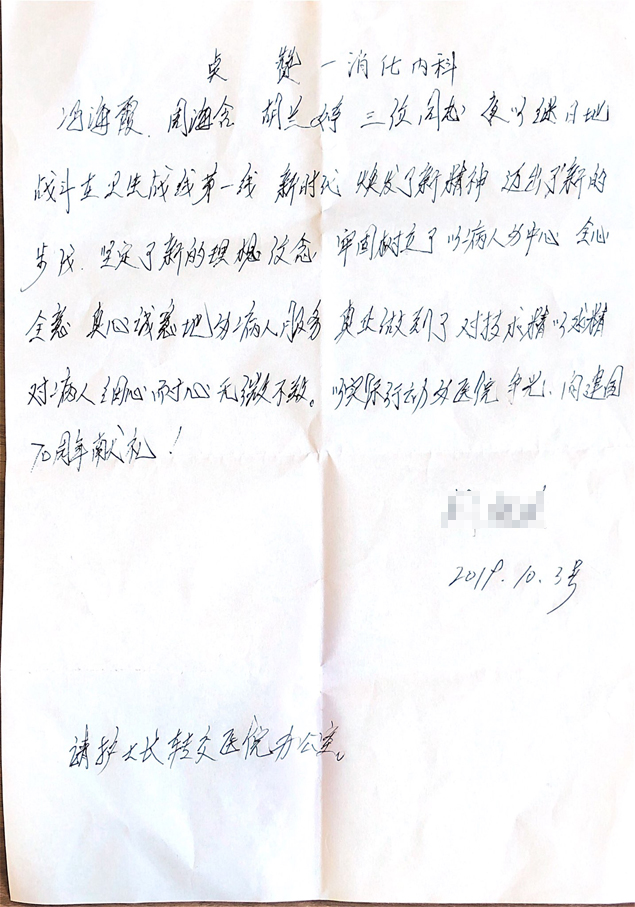 点 赞 一消化内科
冯海霞、周海含 胡兰婷 三位同志 夜以继日地
战斗在卫生战线第一线 新时代 焕发了新精神 迈出了新的
步伐、坚定了新的理想信念 牢固树立了以病人为中心 全心
全意 真心诚意地为病人服务 真正做到了对技术精以求精
对病人细心耐心无微不致。以实际行动为医院争光、向建国
70周年献礼！
2019.10.3号
请护士长转交医院办公室。